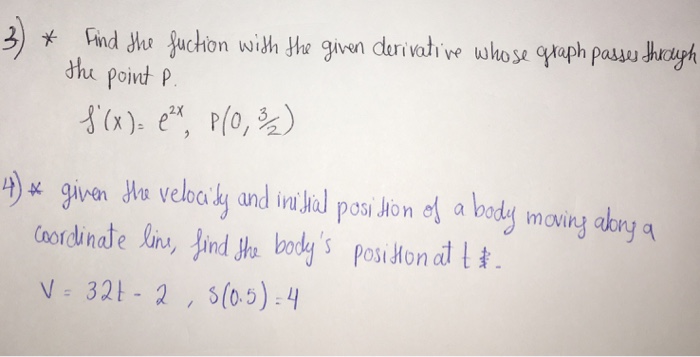 3) * Find the fuction with the given derivative whose graph passes through
the point P.
f'(x) = e²ˣ, P(0, 3/2)
4) * given the velocity and initial position of a body moving along a
coordinate line, find the body's position at t
V = 32t - 2 , S(0.5) = 4